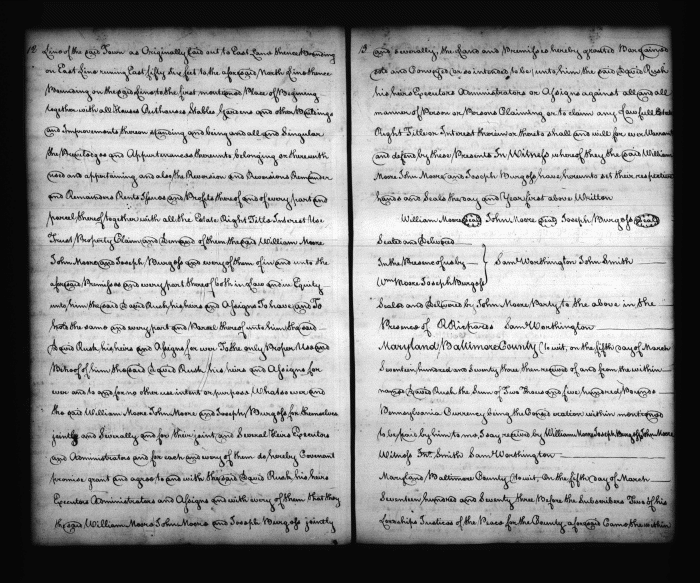 12 Line of the said Town as Originally laid out to East Lane thence Bounding
on East Line runing East fifty six feet to the aforesaid North Line thence
Bounding on the said Line to the first mentioned Place of Beginning
together with all Houses Outhouses Stables Gardens and other Buildings
and Improvements thereon standing and being and all and Singular
the Advantages and Appurtenances thereunto belonging or therewith
used and appertaining and also the Reversion and Reversions Remainder
and Remainders Rents Issues and Profits thereof and of every part and
parcel thereof together with all the Estate Right Title Interest Use
Trust Property Claim and Demand of them the said William Moore
John Moore and Joseph Burgess and every of them of in and unto the
aforesaid Premises and every part thereof both in Law and in Equity
unto him the said David Rusk his heirs and Assigns To have and To
hold the same and every part and Parcel thereof unto him the said
David Rusk his heirs and Assigns for ever To the only Proper Use and
Behoof of him the said David Rusk his heirs and Assigns for
ever and to and for no other use intent or purpose Whatsoever and
the said William Moore John Moore and Joseph Burgess for themselves
jointly and Severally and for their joint and Several Heirs Executors
and Administrators and for each and every of them do hereby Covenant
promise grant and agree to and with the said David Rusk his heirs
Executors Administrators and Assigns and with every of them that they
the said William Moore John Moore and Joseph Burgess jointly
13 and severally, the Land and Premises hereby granted Bargained
sold and Conveyed or so intended to be, unto him the said David Rusk
his heirs Executors Administrators or Assigns against all and all
manner of Person or Persons Claiming or to claim any Lawfull Estate
Right Title or Interest therein or thereto shall and will for ever Warrant
and defend by these Presents In Witness whereof they the said William
Moore John Moore and Joseph Burgess have hereunto set their respective
hands and Seals the day and Year first above Written
William Moore Seal John Moore Seal Joseph Burgess Seal
Sealed and Delivered
In the Presence of us by } Saml Worthington John Smith
Wm Moore Joseph Burgess
Sealed and Delivered by John Moore Party to the above in the
Presence of R Richards Saml Worthington
Maryland Baltimore County to wit, on the fifth day of March
Seventeen hundred and Seventy three then received of and from the within
named David Rusk the Sum of Two Thous and five hundred Pounds
Pennsylvania Currency being the Consideration within mentioned
to be paid by him to me I say received by William Moore Joseph Burgess John Moore
Witness Jno. Smith Saml Worthington
Maryland Baltimore County to wit, On the fifth day of March
Seventeen hundred and Seventy three Before the Subscribers Two of his
Lordships Justices of the Peace for the County aforesaid Came the within